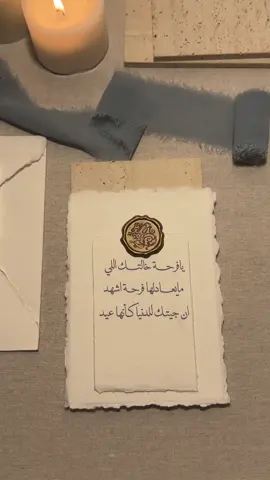 يا فرحة خالتك اللي
مايعادلها فرحة اشهد
ان جيتك للدنيا كأنها عيد